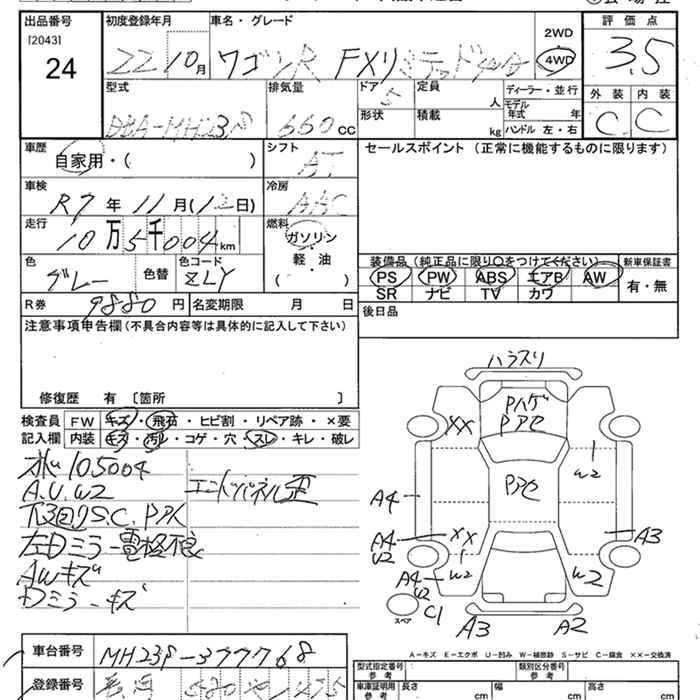 出品番号
[2043]
24
初度登録年月
22
10月
車名・グレード
ワゴンR FXリミテッド
2WD
4WD
評価点
3.5
型式
DBA-MH23S
排気量
660 CC
ドア
5
形状
定員
人
積載
kg
ディーラー・並行
モデル年式 年
ハンドル 左・右
外装
内装
C
C
車歴
自家用・( )
シフト
AT
セールスポイント (正常に機能するものに限ります)
車検
R7 年 11 月(12日)
冷房
AAC
走行
10万5千004 km
燃料
ガソリン
軽・油
( )
色
グレー
色替
色コード
ZLY
装備品 (純正品に限り○をつけてください)
新車保証書
PS PW ABS エアB AW
SR ナビ TV カワ
有・無
R券
9880 円
名変期限 月 日
後日品
注意事項申告欄 (不具合内容等は具体的に記入して下さい)
修復歴 有 [箇所 ]
検査員記入欄
FW キズ・飛石・ヒビ割・リペア跡・×要
内装 キズ・汚れ・コゲ・穴・スレ・キレ・破レ
105004
A.U.W2
エンドパネル歪
下回りS.C.
左Dミラー電格不良
AWキズ
Dミラーキズ
ハラスリ
Pハゲ
Pアセ
XX
W2
Pアセ
A4
A4
U2
XX
W2
A3
A4
U2
W2
C1
スペア
A3
A2
A-キズ E-エクボ U-凹み W-補修跡 S-サビ C-腐食 XX-交換済
車台番号
MH23S-377768
型式指定番号
参考
類別区分番号
参考
登録番号
車庫証明用
参考
長さ
cm
幅
cm
高さ
cm